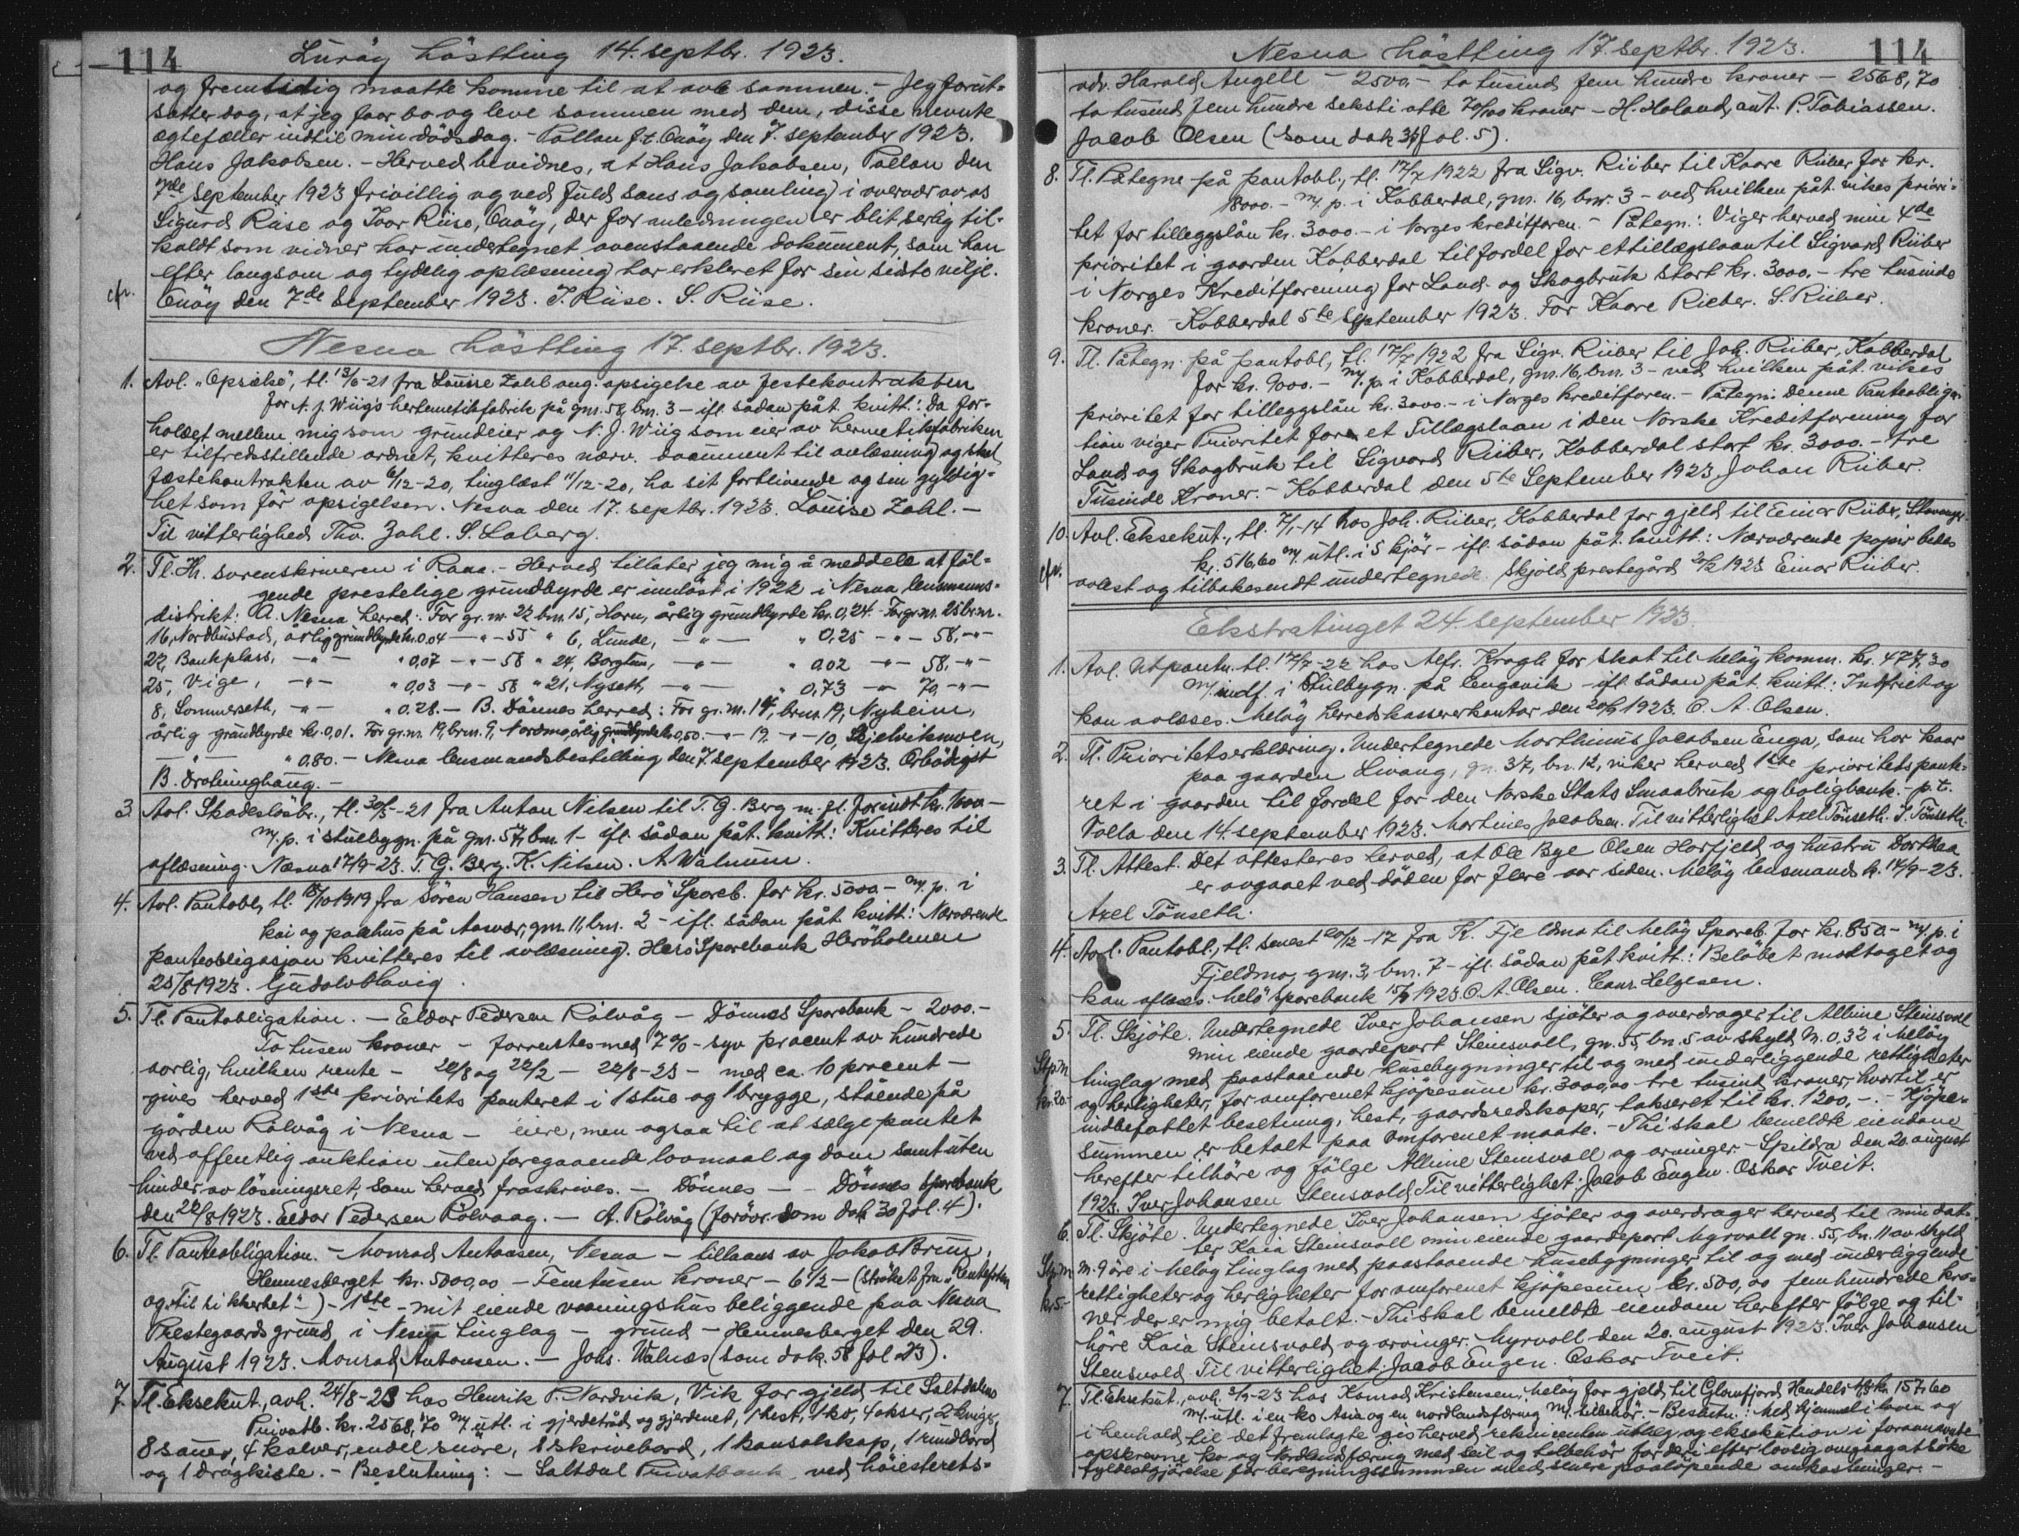 114
Luröy hösting 14. septbr. 1923.
og fremtidig maatte komme til at avle sammen. - Jeg forut-
sætter dog, at jeg faar bo og leve sammen med dem, disse nevnte
egtefæller indtil min dödsdag. - Pollan p.t. Onöy den 7. september 1923.
Hans Jakobsen. - Herved bevidnes, at Hans Jakobsen, Pollan den
7de september 1923 frivillig og ved fuld sans og samling i overvær av os
Sigurd Riise og Ivar Riise, Onöy, der for anledningen er blit særlig til-
kaldt som vidner har undertegnet ovenstaaende dokument, som han
efter langsom og tydelig oplæsning har erklæret for sin sidste vilje.
cfr. Onöy den 7de September 1923. I. Riise. S. Riise.
Nesna hösting 17. septbr. 1923.
1. Avl. "Opsigelse", tl. 13/6-21 fra Louise Zahl ang. opsigelse av festekontrakten
for N. J. Wiigs hermetikfabrik på gnr. 58, bnr. 3 - ifl. sådan påt. kvitt.: Da for-
holdet mellem mig som grundeier og N. J. Wiig som eier av hermetikfabriken
er tilfredsstillende ordnet, kvitteres nærv. document til avlæsning og skal
fæstekontrakten av 6/12-20, tinglæst 11/12-20, ha sit forblivende og sin gyldig-
het som för opsigelsen. Nesna den 17. septbr. 1923. Louise Zahl. -
Til vitterlighed Thv. Zahl. S. Laberg.
2. Tl. Hr. sorenskriveren i Rana. - Herved tillater jeg mig å meddele at föl-
gende prestelige grundbyrde er innlöst i 1922 i Nesna lensmanns-
distrikt: A. Nesna herred: For gr. nr. 22 bnr. 15, Horn, årlig grundbyrde kr. 0,24. For gr. nr. 25 br. nr.
16, Nordbustad, årlig grundbyrde kr. 0,04 - " - 55 " 6, Lunde, - " - " 0,25 - " - 58, - " -
22, Bankplass, - " - " 0,07 - " - 58 " 24, Borgtun, - " - " 0,02 - " - 58, - " -
25, Vige, - " - " 0,03 - " - 58 " 21, Nyseth, - " - " 0,73 - " - 70, - " -
8, Sommerseth, - " - " 0,28. - B. Dönnes herred: For gr. nr. 14, brnr. 19, Nyheim,
årlig grundbyrde kr. 0,01. For gr. nr. 19, br. nr. 9, Nordmo, årlig grundbyrde kr. 0,50. - " - 19. - " - 10, Skjelvikmoen,
- " - " 0,80. - Nesna lensmandsbestilling den 7. september 1923. Erbödigst
B. Dröhnesshaug. -
3. Avl. Skadeslösbr., tl. 30/5-21 fra Anton Nilsen til T. G. Berg m. fl. for inntil kr. 1000 -
m. p. i stuebygn. på gnr. 57, bnr. 1 - ifl. sådan påt. kvitt: Kvitteres til
aflæsning. Nesna 17/9-23. T. G. Berg. K. Nilsen. A. Walnum.
4. Avl. Pantobl., tl. 18/10 1919 fra Sören Hansen til Herö Spareb. for kr. 5000 - m. p. i
kai og pakhus på Aasvær, gnr. 11, bnr. 2 - ifl. sådan påt. kvitt: Nærværende
panteobligasjon kvitteres til avlæsning. Herö Sparebank Heröholmen
25/8 1923. Gudolv Havig.
5. Tl. Pantobligation. - Eldor Pedersen Rölvåg - Dönnes Sparebank - 2000. -
To tusen kroner - forrentes med 7% - syv procent av hundrede
aarlig, hvilken rente - 22/8 og 22/2 - 22/8-23 - med ca. 10 procent -
gives herved 1ste prioritets panteret i 1 stue og 1 brygge, stående på
gården Rölvåg i Nesna - eiere, men ogsaa til at sælge pantet
ved offentlig auktion uten foregaaende lovmaal og dom samt uten
hinder av lösningsret, som herved fraskrives. - Dönnes - Dönnes Sparebank
den 22/8 1923. Eldor Pedersen Rölvaag. - A. Rölvåg (forövr. som dok 30 fol. 4).
6. Tl. Panteobligation. - Monrad Antonsen, Nesna - tillaans av Jakob Bruun,
Hemnesberget kr. 5000,00 - Femtusen kroner - 6 1/2 - (ströket fra "Renteplikten
og "Til sikkerhet" -) - 1ste - mit eiende vaaningshus beliggende paa Nesna
Prestegaards grund i Nesna tinglag - grund - Hemnesberget den 29.
August 1923. Monrad Antonsen. - Johs. Walnæs (som dok. 58 fol. 23).
7. Tl. Eksekut., avh. 24/8-23 hos Henrik P. Nordvik, Vik for gjeld til Saltdalens
Privatb. kr. 2568,70 m/ utl. i gjerdetråd og gjerdenet, 1 hest, 1 ko, 4 okser, 2 kviger,
8 sauer, 4 kalver, endel snöre, 1 skrivebord, 1 konsolskap, 1 rundbord
og 1 dragkiste. - Beslutning: - Saltdal Privatbank ved höiesterets-
114
Nesna hösting 17. septbr. 1923.
adv. Harald Angell - 2500,- to tusind fem hundre kroner - 2568,70
to tusind fem hundre seksti otte 70/100 kroner - H. Holand, aut. P. Tobiassen.
Jacob Olsen (som dok 37 fol. 5).
8. Tl. Påtegn. på pantobl., tl. 17/7 1922 fra Sigv. Riiber til Kaare Riiber for kr.
18000. - m. p. i Kobberdal, gnr. 16, bnr. 3 - ved hvilken påt. vikes priori-
tet for tilleggslån kr. 3000. - i Norges kreditforen. - Påtegn.: Viger herved min 4de
prioritet i gaarden Kobberdal til fordel for et tillægslaan til Sigvard Riiber
i Norges Kreditforening for Land- og Skogbruk stort kr. 3000,- tre tusinde
kroner. - Kobberdal 5te September 1923. For Kaare Rieber. S. Riiber.
9. Tl. Påtegn. på pantobl., tl. 17/7 1922 fra Sigv. Riiber til Joh. Riiber, Kobberdal
for kr. 9000. - m/ p. i Kobberdal, gnr. 16, bnr. 3 - ved hvilken påt. vikes
prioritet for tilleggslån kr. 3000. - i Norges kreditforen. - Påtegn: Denne Panteobliga-
tion viger Prioritet for et Tillægslaan i den Norske Kreditforening for
Land og Skogbruk til Sigvard Riiber, Kobberdal stort kr. 3000. - tre
Tusinde Kroner. - Kobberdal den 5te September 1923. Johan Riiber.
10. Avl. Eksekut., tl. 7/1-14 hos Joh. Riiber, Kobberdal for gjeld til Einar Riiber, Stavanger
kr. 516,60 m/ utl. i 5 kjör - ifl. sådan påt. kvitt: Nærværende papir bedes
cfr. avlest og tilbakesendt undertegnede. Skjold prestegård 2/2 1923 Einar Riiber.
Ekstratinget 24. september 1923.
1. Avl. Utpantn. tl. 17/7-22 hos Alfr. Kragh for skat til Melöy komm. kr. 477,30
m/ indf. i Stuebygn. på Engavik - ifl. sådan påt. kvitt: Indfriet og
kan avlæses. Melöy herredskassererkontor den 20/9 1923. O. A. Olsen.
2. Tl. Prioritetserklæring. Undertegnede Marthinus Jacobsen Enga, som har kaar
paa gaarden Livang, gn. 37, bn. 12, viker herved 1ste prioritets pante-
ret i gaarden til fordel for den Norske Stats Smaabruk og boligbank. - p. t.
Valla den 14. september 1923. Martinus Jacobsen. Til vitterlighet Axel Tönseth. J. Tönseth.
3. Tl. Attest. Det attesteres herved, at Ole Bye Olsen Horfjeld og hustru Dorthea
er avgaaet ved döden for flere aar siden. Melöy lensmands k. 14/9-23.
Axel Tönseth.
4. Avl. Pantobl., tl. senest 20/12-17 fra K. Fjeldmo til Melöy Spareb. for kr. 850 - m. p. i
Fjeldmo, gnr. 3, bnr. 7 - ifl. sådan påt. kvitt: Belöbet modtaget og
kan aflæses. Melö Sparebank 15/9 1923 O. A. Olsen. Conr. Helgesen.
5. Tl. Skjöte. Undertegnede Iver Johansen sjöter og overdrager til Alline Steinsvoll
Stpm min eiende gaardepart Stensvoll, gn. 55, bn. 5 av skyld M. 0,32 i Melöy
tinglag med paastaaende husebygninger til og med underliggende rettigheter
kr. 20.- og herligheter, for omforenet kjöpesum kr. 3000,00 tre tusind kroner, hvortil er
indbefattet besetning, hest, gaardsredskaper, takseret til kr. 1200,-. - Kjöpe-
summen er betalt paa omforenet maate. - Thi skal bemeldte eiendom
herefter tilhöre og fölge Alline Stensvoll og arvinger. - Spildra den 20. august
1923. Iver Johansen Stensvold. Til vitterlighet: Jacob Engen. Oskar Tveit.
6. Tl. Skjöte. Undertegnede Iver Johansen sjöter og overdrager herved til min dat-
ter Kaia Steinsvoll min eiende gaardepart Myrvoll gn. 55, bn. 11 av skyld
Stpm m. 9 öre i Melöy tinglag med paastaaende husebygninger til og med underliggende
kr. 5- rettigheter og herligheter for omforenet kjöpesum kr. 500,00 femhundrede kro-
ner der er mig betalt. - Thi skal bemeldte eiendom herefter fölge og til-
höre Kaia Steinsvold og arvinger. Myrvoll den 20. august 1923. Iver Johansen
Stensvold. Til vitterlighet: Jacob Engen. Oskar Tveit.
7. Tl. Eksekut., avh. 3/9-23 hos Konrad Kristensen, Melöy for gjeld til Glomfjord Handels A/S kr. 157,60
m/ utl. i en ko Asia og en nordlandsfæring m/ tilbehör. - Beslutn.: Med hjemmel i loven og
i henhold til det fremlagte gis herved rekvirenten utlæg og eksekution i foranævnte
opskrevne ko og Nordlandsfæring med seil og tilbehör for deri efter lovlig avgivagat söke
fyldestgjörelse for beregningssummen med senere paalöpende omkostninger. -